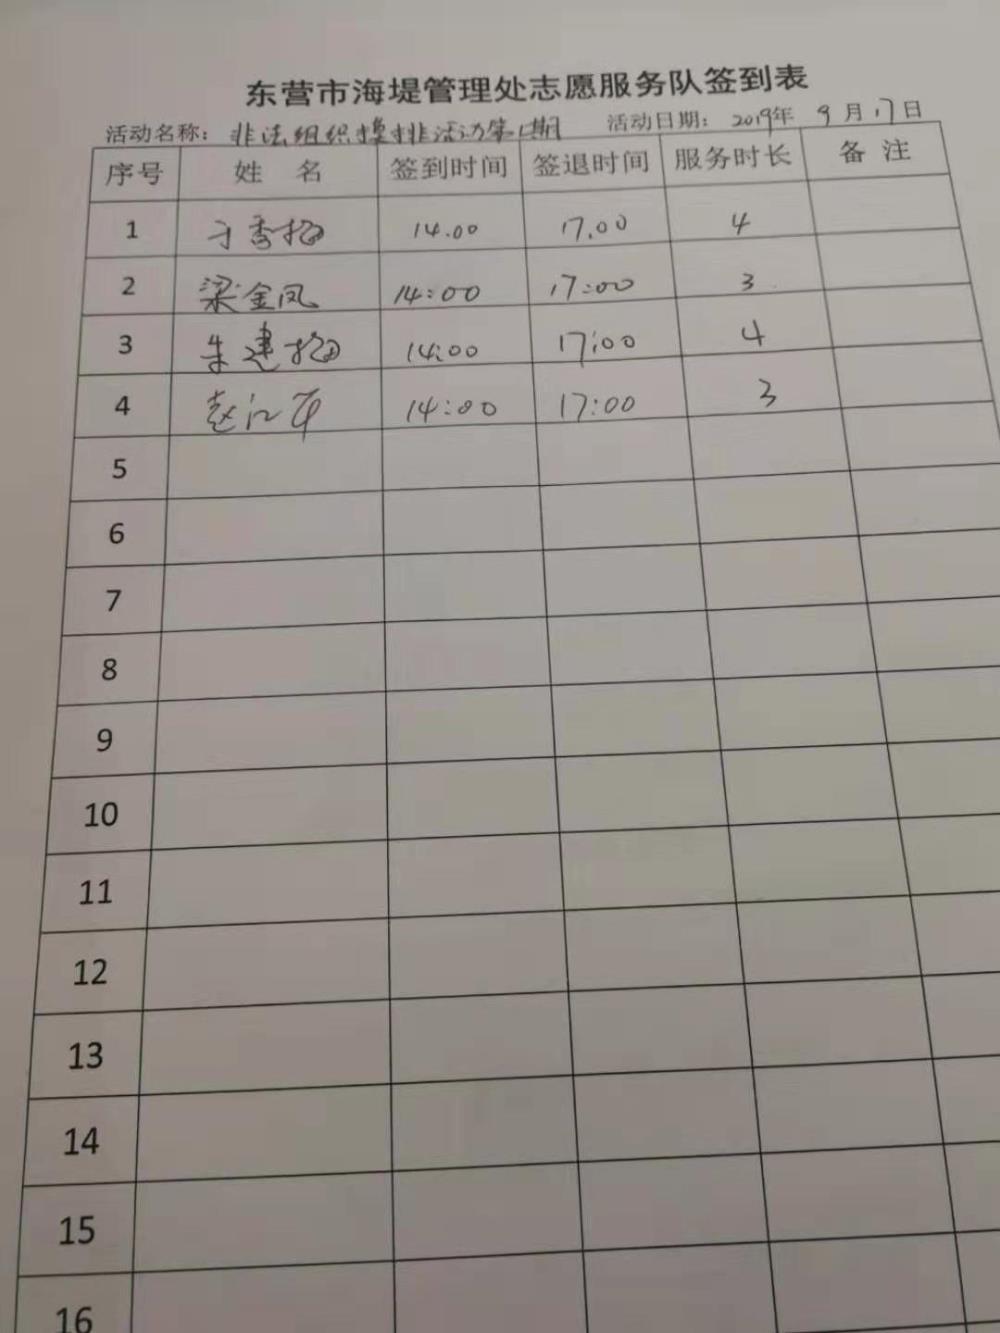 东营市海堤管理处志愿服务队签到表
活动名称：非法组织摸排活动第1期 活动日期：2019年 9月17日
序号 姓 名 签到时间 签退时间 服务时长 备 注
1 14.00 17.00 4
2 梁金凤 14:00 17:00 3
3 朱建 14:00 17:00 4
4 赵江 14:00 17:00 3
5
6
7
8
9
10
11
12
13
14
15
16